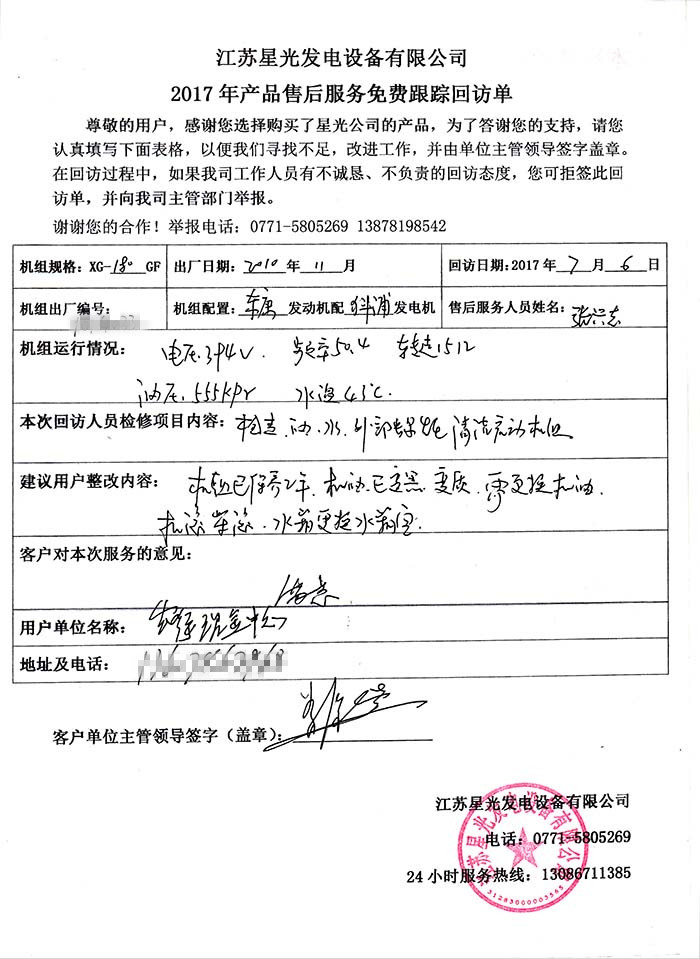 江苏星光发电设备有限公司
2017年产品售后服务免费跟踪回访单
尊敬的用户，感谢您选择购买了星光公司的产品，为了答谢您的支持，请您
认真填写下面表格，以便我们寻找不足，改进工作，并由单位主管领导签字盖章。
在回访过程中，如果我司工作人员有不诚恳、不负责的回访态度，您可拒签此回
访单，并向我司主管部门举报。
谢谢您的合作！举报电话：0771-5805269 13878198542
机组规格：XG-180 GF 出厂日期：2010年11月 回访日期：2017年7月6日
机组出厂编号： 机组配置：东康发动机配 发电机 售后服务人员姓名：
机组运行情况： 电压394V. 频率50.4 转速1512
油压555kpr 水温43℃.
本次回访人员检修项目内容：检查.油.水.外部 清洁发动机组
建议用户整改内容： 机组已保养2年.机油已变黑.变质.需更换机油.
机滤.柴滤.水箱更换水箱宝.
客户对本次服务的意见：
满意
用户单位名称：
地址及电话：
客户单位主管领导签字（盖章）：
江苏星光发电设备有限公司
电话：0771-5805269
24小时服务热线：13086711385
江苏星光发电设备有限公司